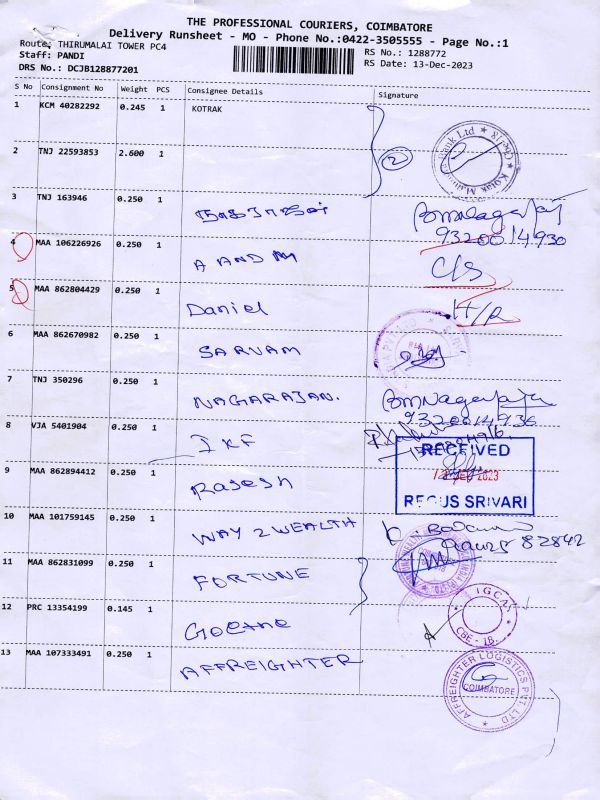 THE PROFESSIONAL COURIERS, COIMBATORE
Delivery Runsheet - MO - Phone No.:0422-3505555 - Page No.:1
Route: THIRUMALAI TOWER PC4
RS No.: 1288772
Staff: PANDI
RS Date: 13-Dec-2023
DRS No.: DCJB128877201
S No Consignment No Weight PCS Consignee Details Signature
1 KCM 40282292 0.245 1 KOTRAK
2 TNJ 22593853 2.600 1 2
3 TNJ 163946 0.250 1
9320014930
4 MAA 106226926 0.250 1 A AND M C/S
5 MAA 862804429 0.250 1 Daniel
6 MAA 862670982 0.250 1 SARVAM
7 TNJ 350296 0.250 1 NAGARAJAN. BMNagarajan
9320014930
8 VJA 5401904 0.250 1 IKF
RECEIVED
9 MAA 862894412 0.250 1 Rajesh
2023
REGUS SRIVARI
10 MAA 101759145 0.250 1 WAY 2 WEALTH
82842
11 MAA 862831099 0.250 1 FORTUNE
12 PRC 13354199 0.145 1 Goethe
IGCA
CBE - 18.
13 MAA 107333491 0.250 1 AFFREIGHTER
AFFREIGHTER LOGISTICS PVT. LTD
COIMBATORE